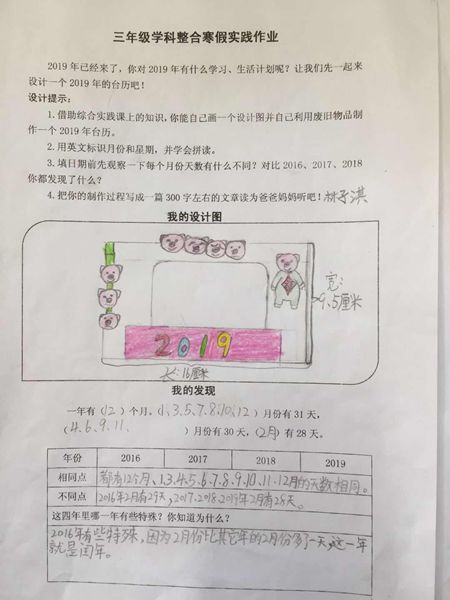 三年级学科整合寒假实践作业
2019年已经来了，你对2019年有什么学习、生活计划呢？让我们先一起来
设计一个2019年的台历吧！
设计提示：
1.借助综合实践课上的知识，你能自己画一个设计图并自己利用废旧物品制
作一个2019年台历。
2.用英文标识月份和星期，并学会拼读。
3.填日期前先观察一下每个月份天数有什么不同？对比2016、2017、2018
你都发现了什么？
4.把你的制作过程写成一篇300字左右的文章读为爸爸妈妈听吧！林子淇
我的设计图
宽：
9.5厘米
2019
长：16厘米
我的发现
一年有（12）个月。（1、3.5、7.8、10、12）月份有31天，
（4、6、9、11、）月份有30天，（2月）有28天。
年份 2016 2017 2018 2019
相同点 都有12个月、1.3.4.5.6.7.8.9.10.11.12月的天数相同。
不同点 2016年2月有29天，2017.2018.2019年2月有28天。
这四年里哪一年有些特殊？你知道为什么？
2016年有些特殊，因为2月份比其它年的2月份多了一天，这一年
就是闰年。